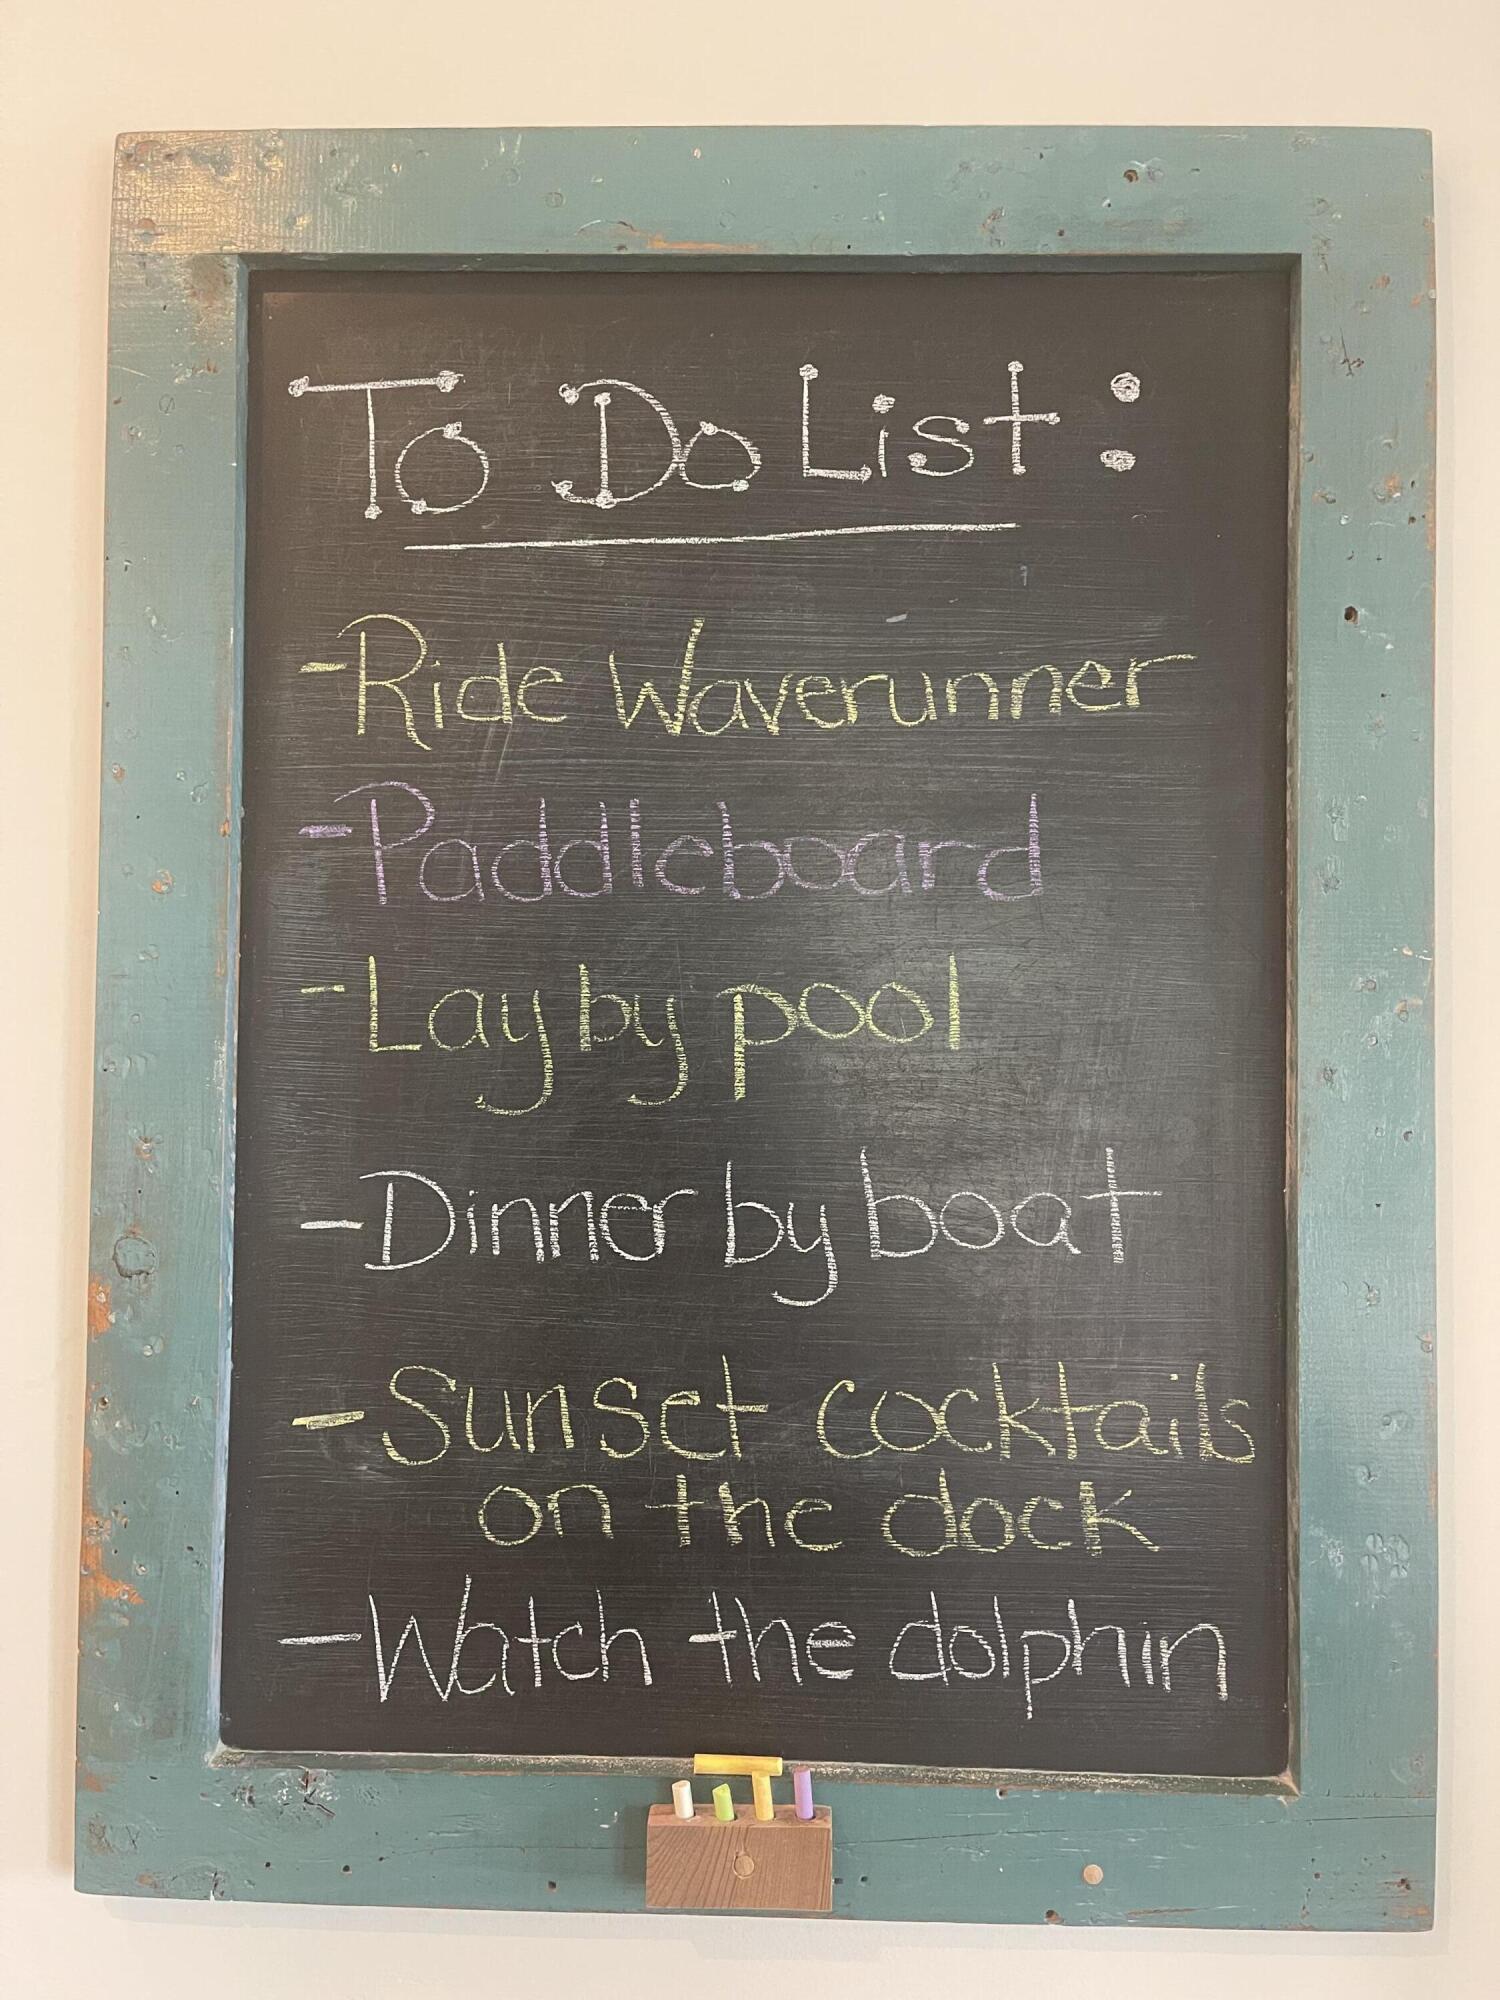 To Do List:
-Ride Waverunner
-Paddleboard
-Lay by pool
-Dinner by boat
-Sunset cocktails
on the dock
-Watch the dolphin